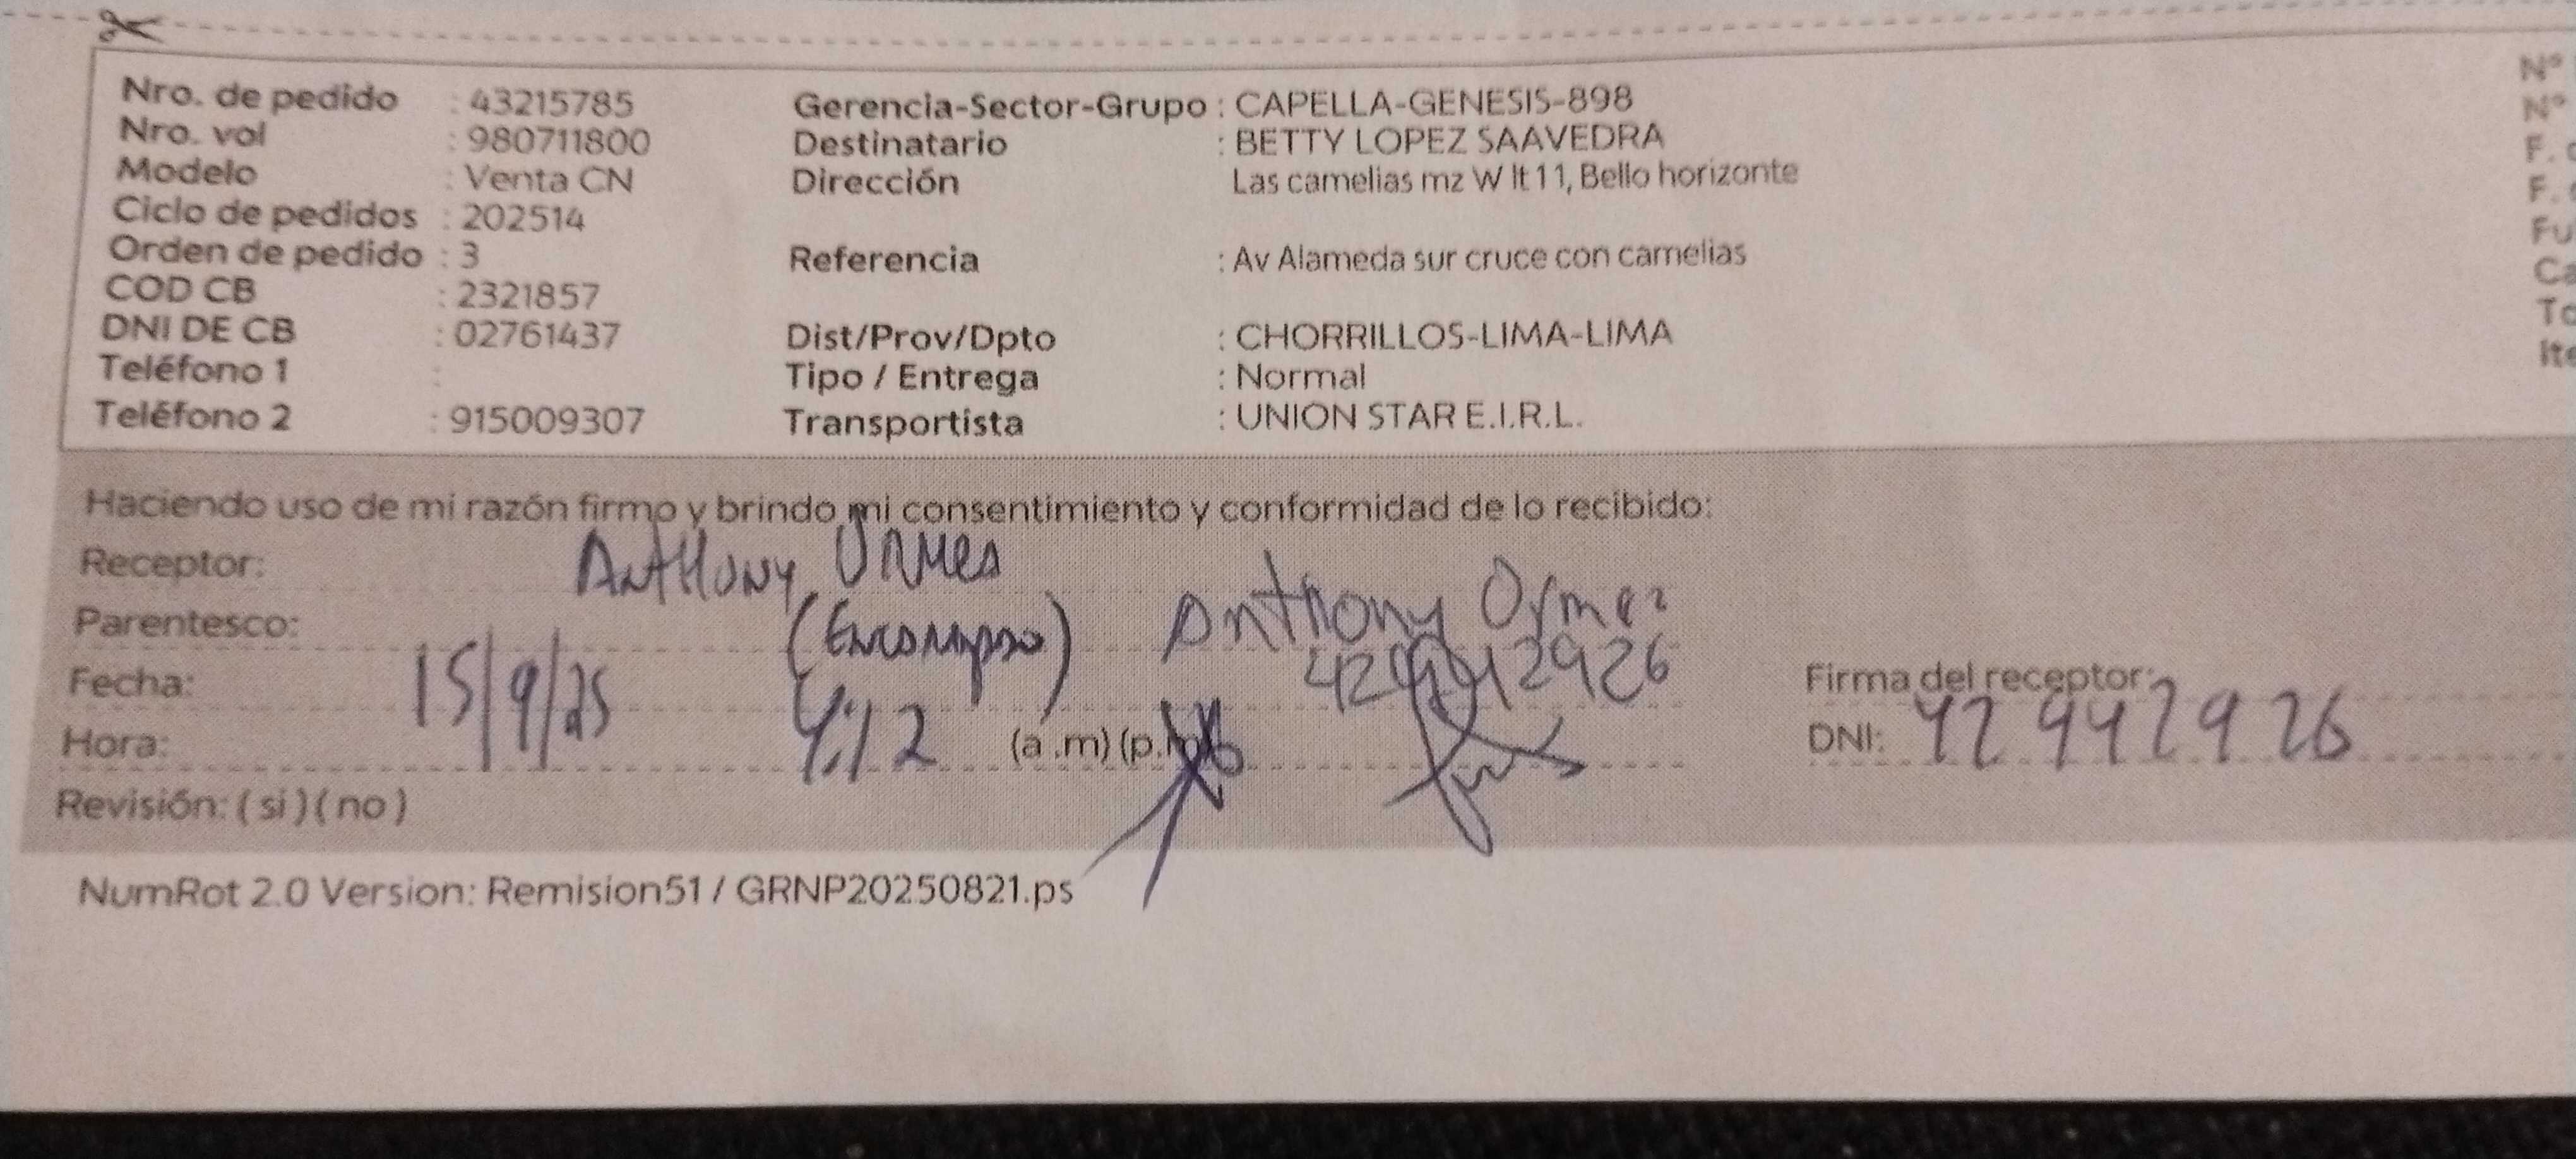 Nro. de pedido : 43215785
Nro. vol : 980711800
Modelo : Venta CN
Ciclo de pedidos : 202514
Orden de pedido : 3
COD CB : 2321857
DNI DE CB : 02761437
Teléfono 1 :
Teléfono 2 : 915009307
Gerencia-Sector-Grupo : CAPELLA-GENESIS-898
Destinatario : BETTY LOPEZ SAAVEDRA
Dirección Las camelias mz W lt 11, Bello horizonte
Referencia : Av Alameda sur cruce con camelias
Dist/Prov/Dpto : CHORRILLOS-LIMA-LIMA
Tipo / Entrega : Normal
Transportista : UNION STAR E.I.R.L.
N°
N°
F.
F.
Haciendo uso de mi razón firmo y brindo mi consentimiento y conformidad de lo recibido:
Receptor: Anthony
Parentesco:
Anthony
Fecha: 15/9/25
Hora: 4:12 (a .m) (p.m)
Firma del receptor:
DNI: 42942926
Revisión: ( si ) ( no )
NumRot 2.0 Version: Remision51 / GRNP20250821.ps